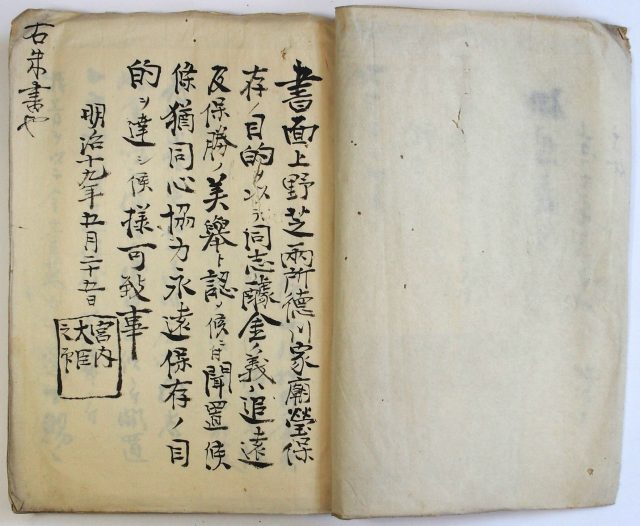 書面上野芝両所徳川家廟塋保
存ノ目的ヲ以テ同志醵金ノ義ハ追遠
及保勝ノ美擧ト認メ候ニ付聞置候
條猶同心協力永遠保存ノ目
的ヲ達シ候様可致事
明治十九年五月二十五日
宮内
大臣
之印
右朱書也